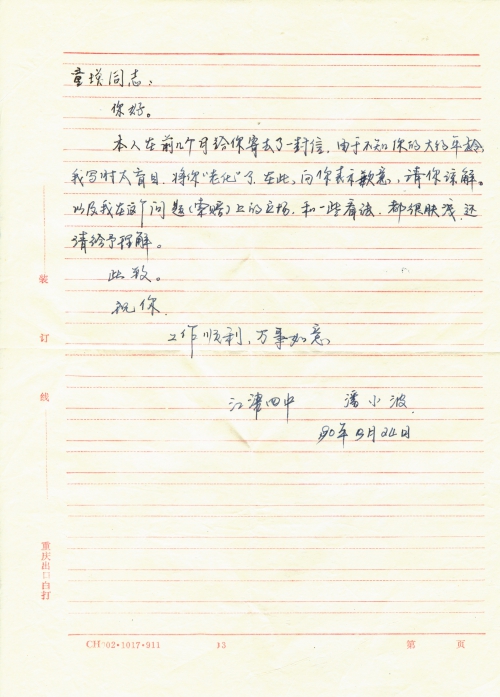 童瑛同志：
你好。
本人在前几个月给你寄去了一封信，由于不知你的大约年龄
我写时太盲目，将你“老化”了，在此，向你表示歉意，请你谅解。
以及我在这个问题（索婚）上的立场，和一些看法，都很肤浅，还
请给予理解。
此致。
祝你
工作顺利，万事如意
江津四中 潘小波
90年3月24日
装
订
线
重庆出口白打
CH 02·1017·911 13 第 页